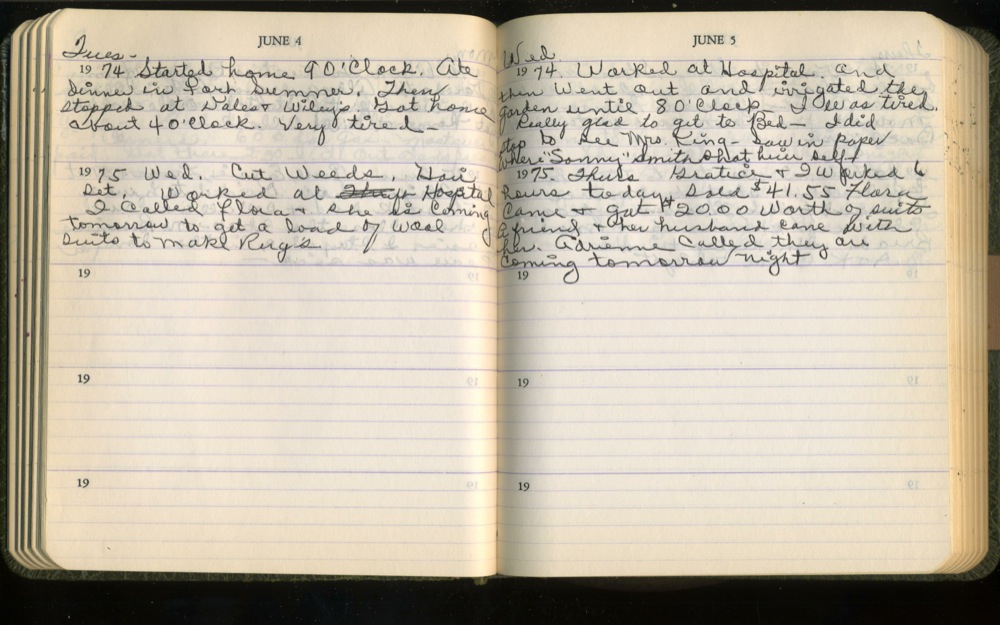 JUNE 4
Tues-
1974 Started home 9 O'Clock. Ate
dinner in Fort Sumner. Then
stopped at Dales & Wiley's. Got home
about 4 O'Clock. Very tired-
1975 Wed. Cut Weeds. Hair
set. Worked at Hospital
I Called Flora & she is Coming
tomorrow to get a load of Wool
suits to make Rugs
19
19
19
JUNE 5
Wed.
1974. Worked at Hospital. and
then Went out and irrigated the
garden until 8 O'Clock I was tired.
Really glad to get to Bed- I did
stop to see Mrs. King- Saw in paper
where "Sonny" Smith shot him self
1975 Thurs Gratice & I Worked 6
hours today sold $41.55 Flora
Came & got $20.00 Worth of suits
A friend & her husband came With
her. Adrienne Called they are
Coming tomorrow night
19
19
19